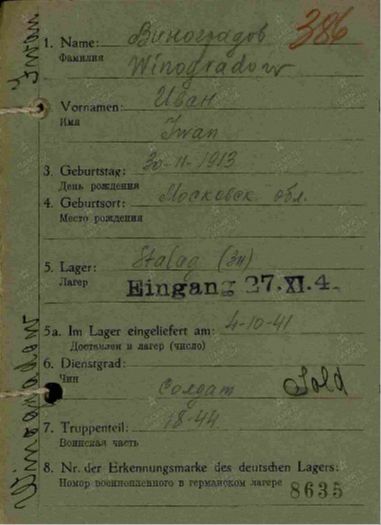 386
Iwan
1. Name: Виноградов
Фамилия Winogradow
Vornamen: Иван
Имя Iwan
3. Geburtstag: 30-11-1913
День рождения
4. Geburtsort: Московск. обл.
Место рождения
5. Lager: Stalag
Лагерь
Eingang 27.XI.4.
5a. Im Lager eingeliefert am: 4-10-41
Доставлен в лагерь (число)
6. Dienstgrad:
Чин солдат Sold
7. Truppenteil: 18-44
Воинская часть
8. Nr. der Erkennungsmarke des deutschen Lagers:
Номер военнопленного в германском лагере 8635
Winogradow